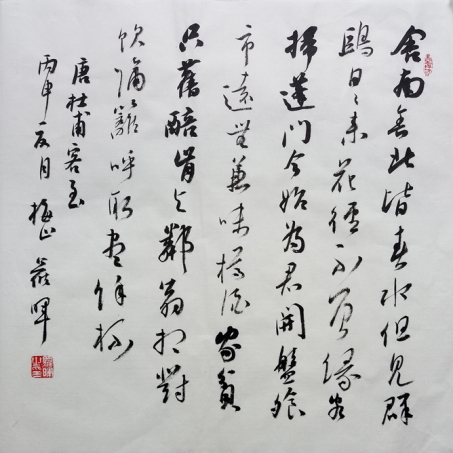 舍南舍北皆春水但見群
鷗日々来花徑不曾緣客
掃蓬門今始為君開盤飧
市遠無兼味樽酒家貧
只舊醅肯与鄰翁相對
飲隔籬呼取盡餘杯
唐杜甫客至
丙申月梅山暉